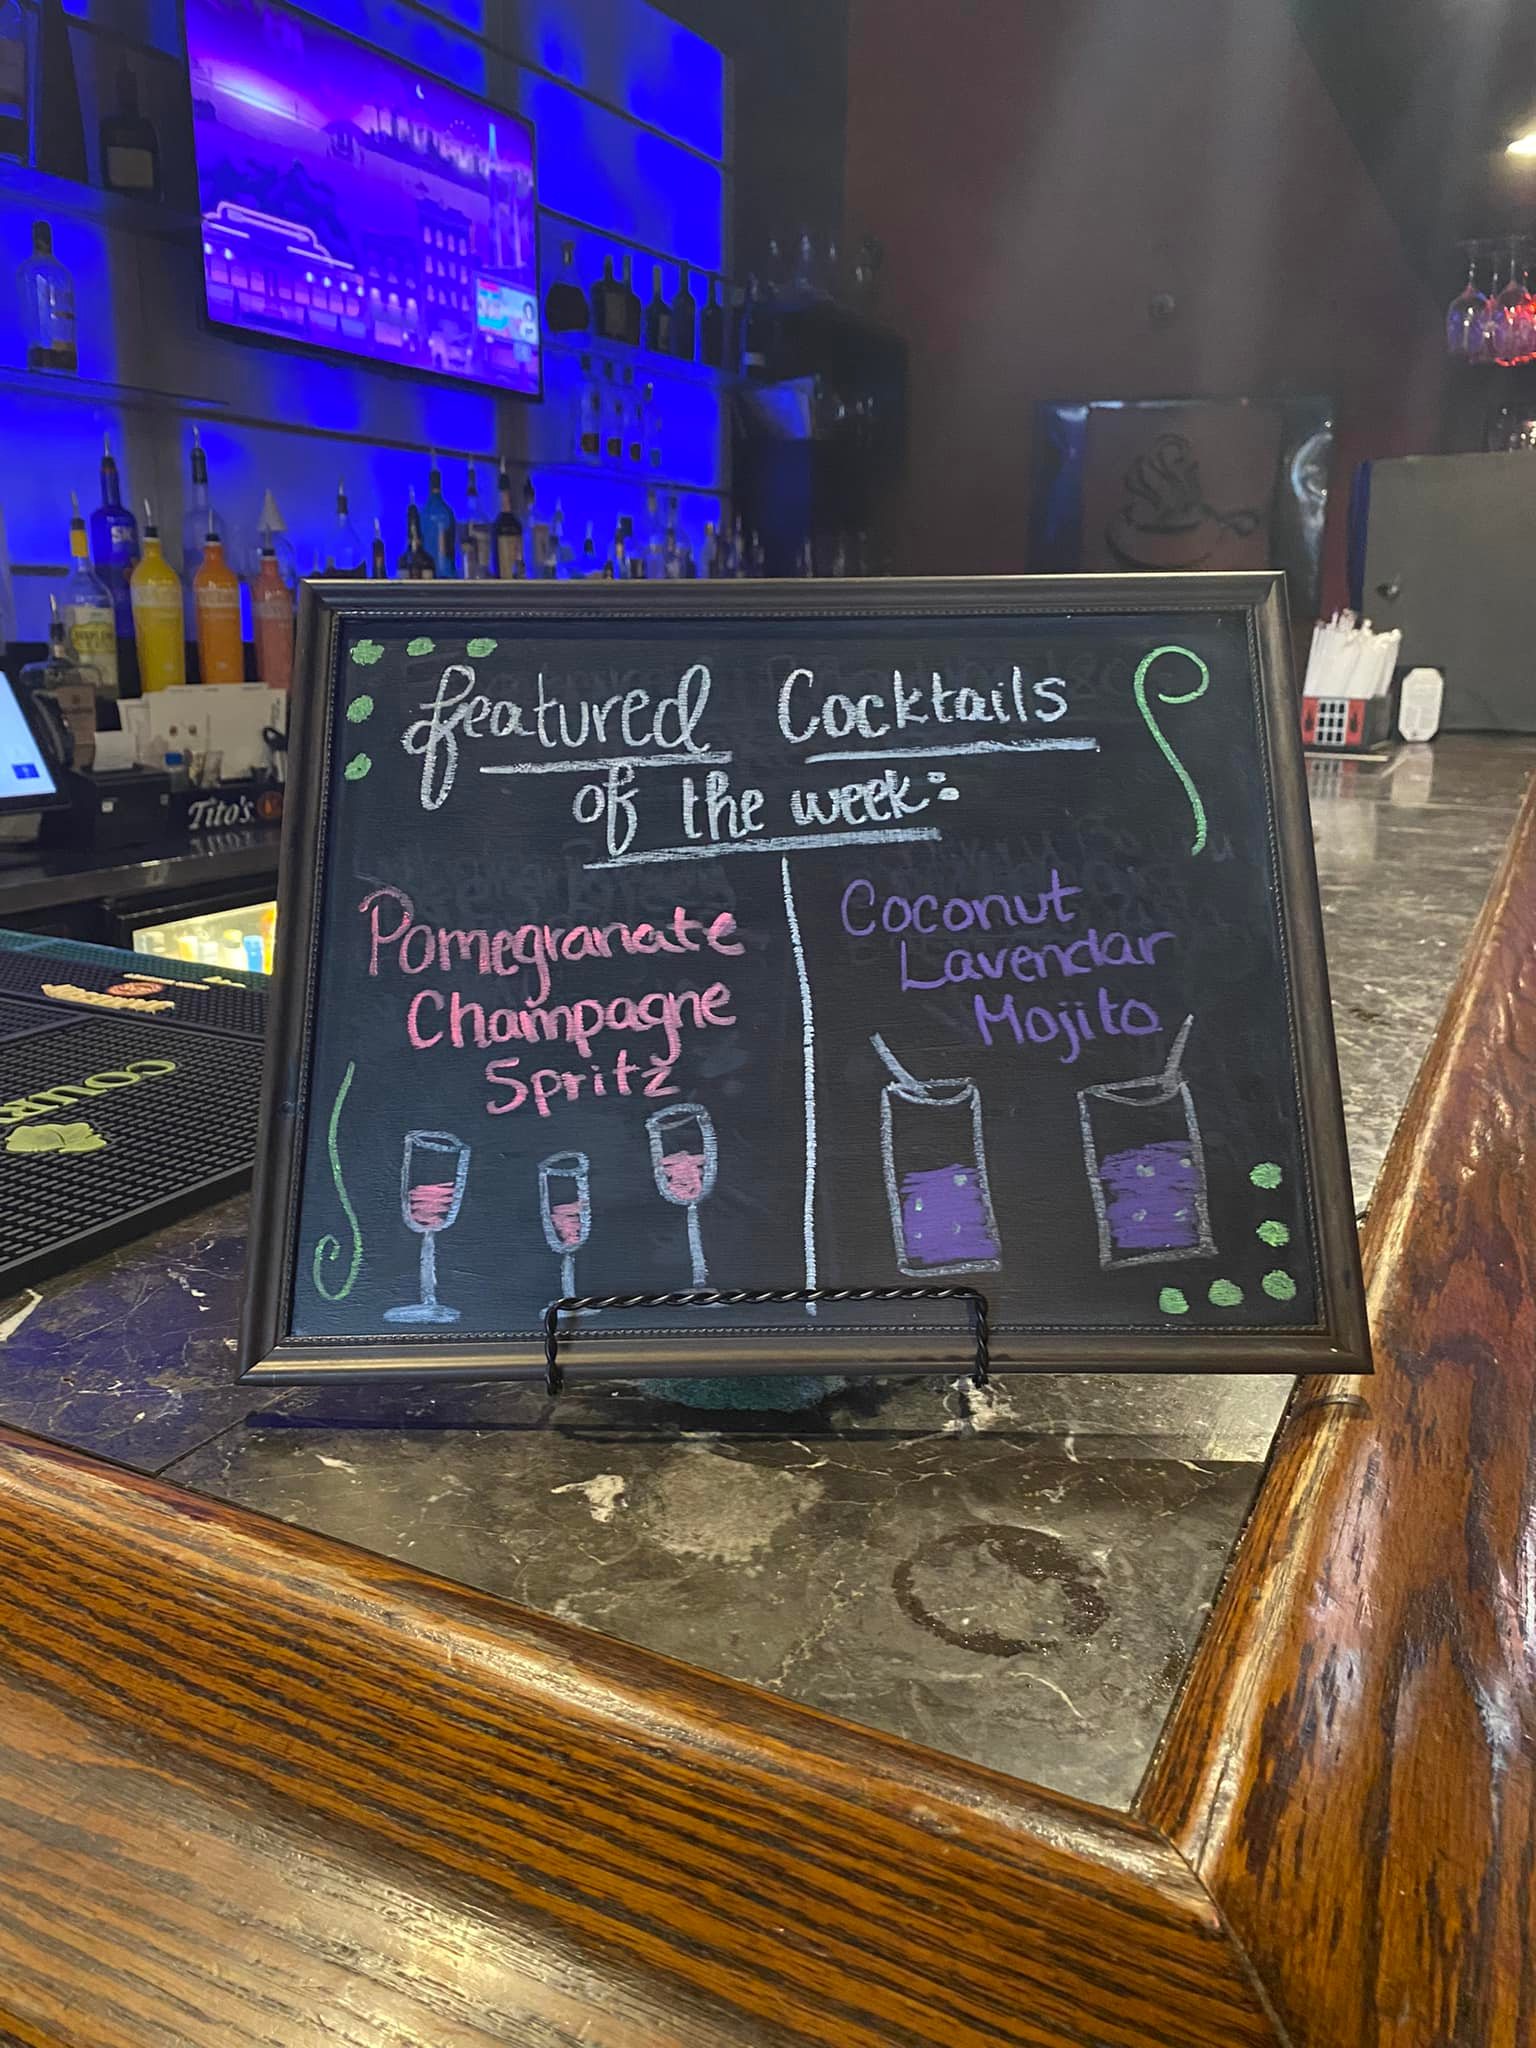 featured Cocktails
of the week:
Pomegranate
Champagne
Spritz
Coconut
Lavendar
Mojito
Tito's
COUR
SK